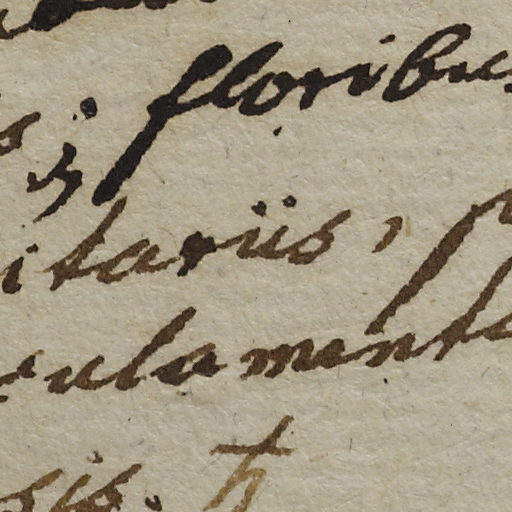 ; floribus
itariis,
ulament
sis. ♄